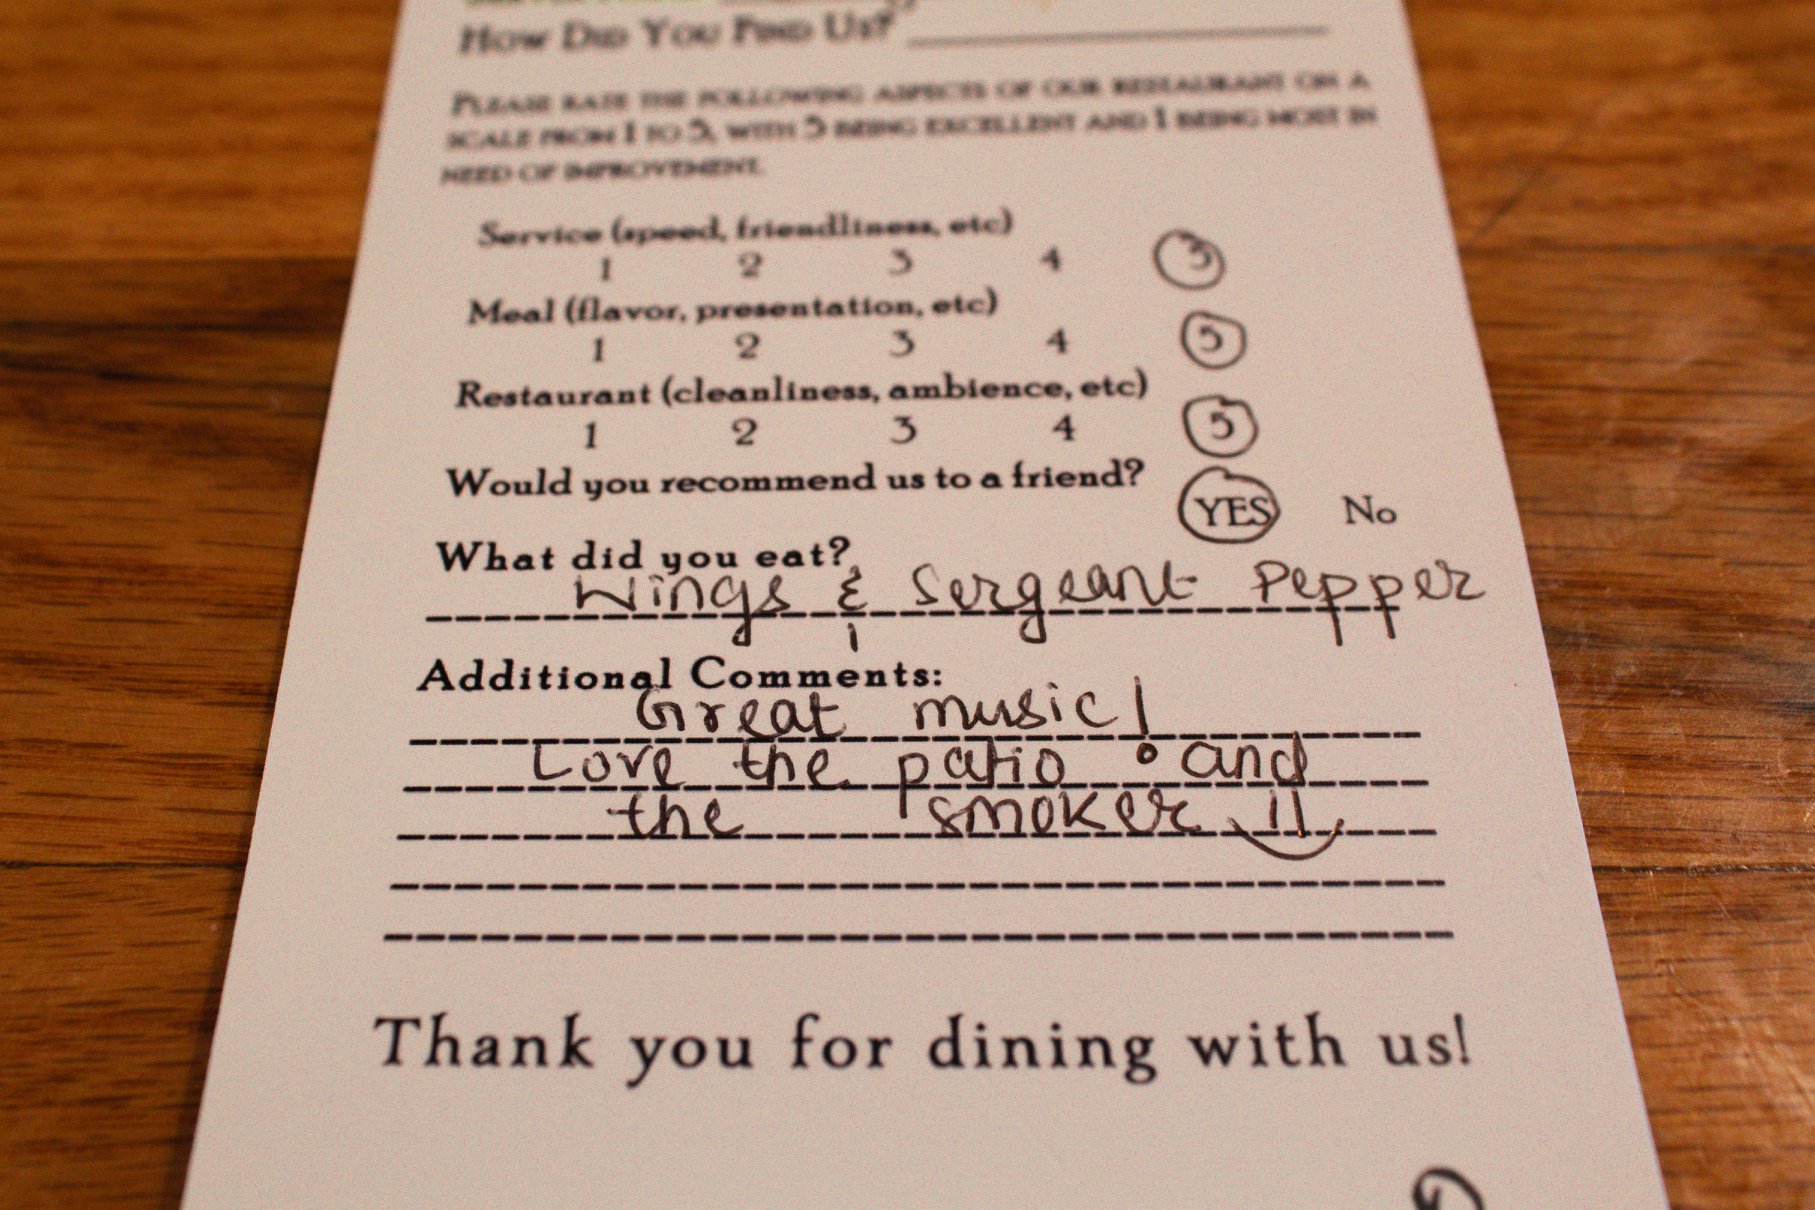 How Did You Find Us?
Please rate the following aspects of our restaurant on a
scale from 1 to 5, with 5 being excellent and 1 being most in
need of improvement.
Service (speed, friendliness, etc)
1 2 3 4 5
Meal (flavor, presentation, etc)
1 2 3 4 5
Restaurant (cleanliness, ambience, etc)
1 2 3 4 5
Would you recommend us to a friend?
YES No
What did you eat?
Wings & Sergeant Pepper
Additional Comments:
Great music!
Love the patio and
the smoker !!
Thank you for dining with us!